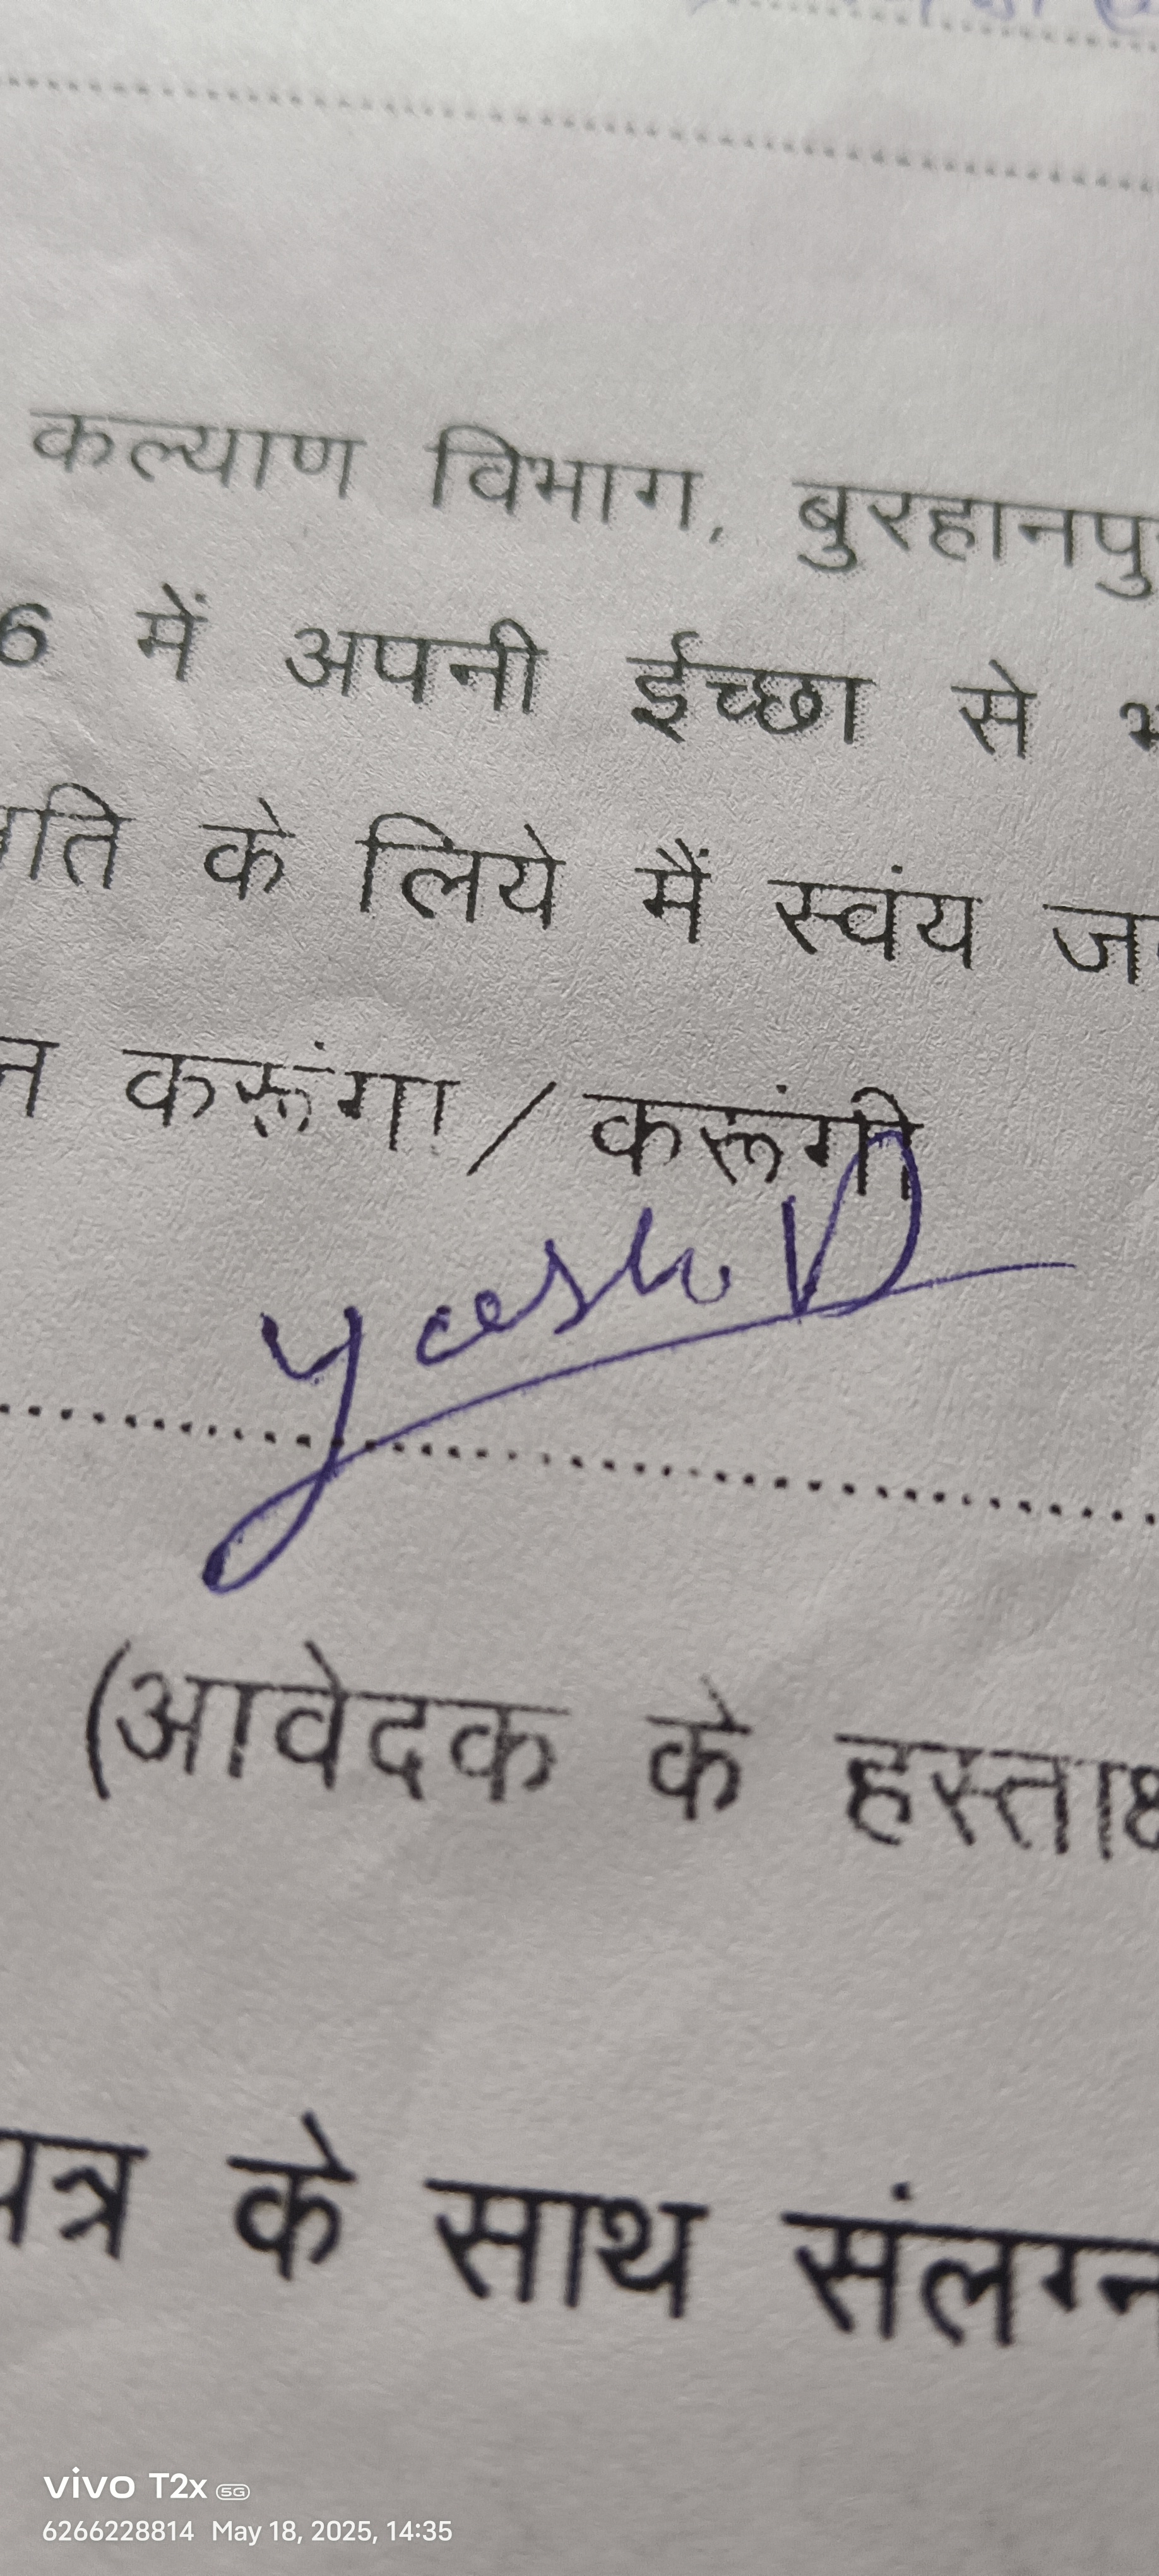 कल्याण विभाग, बुरहानपु
6 में अपनी ईच्छा से
के लिये मैं स्वंय
करूंगा / करूंगी
yash D
(आवेदक के
के साथ संलग्न
vivo T2x 5G
6266228814 May 18, 2025, 14:35